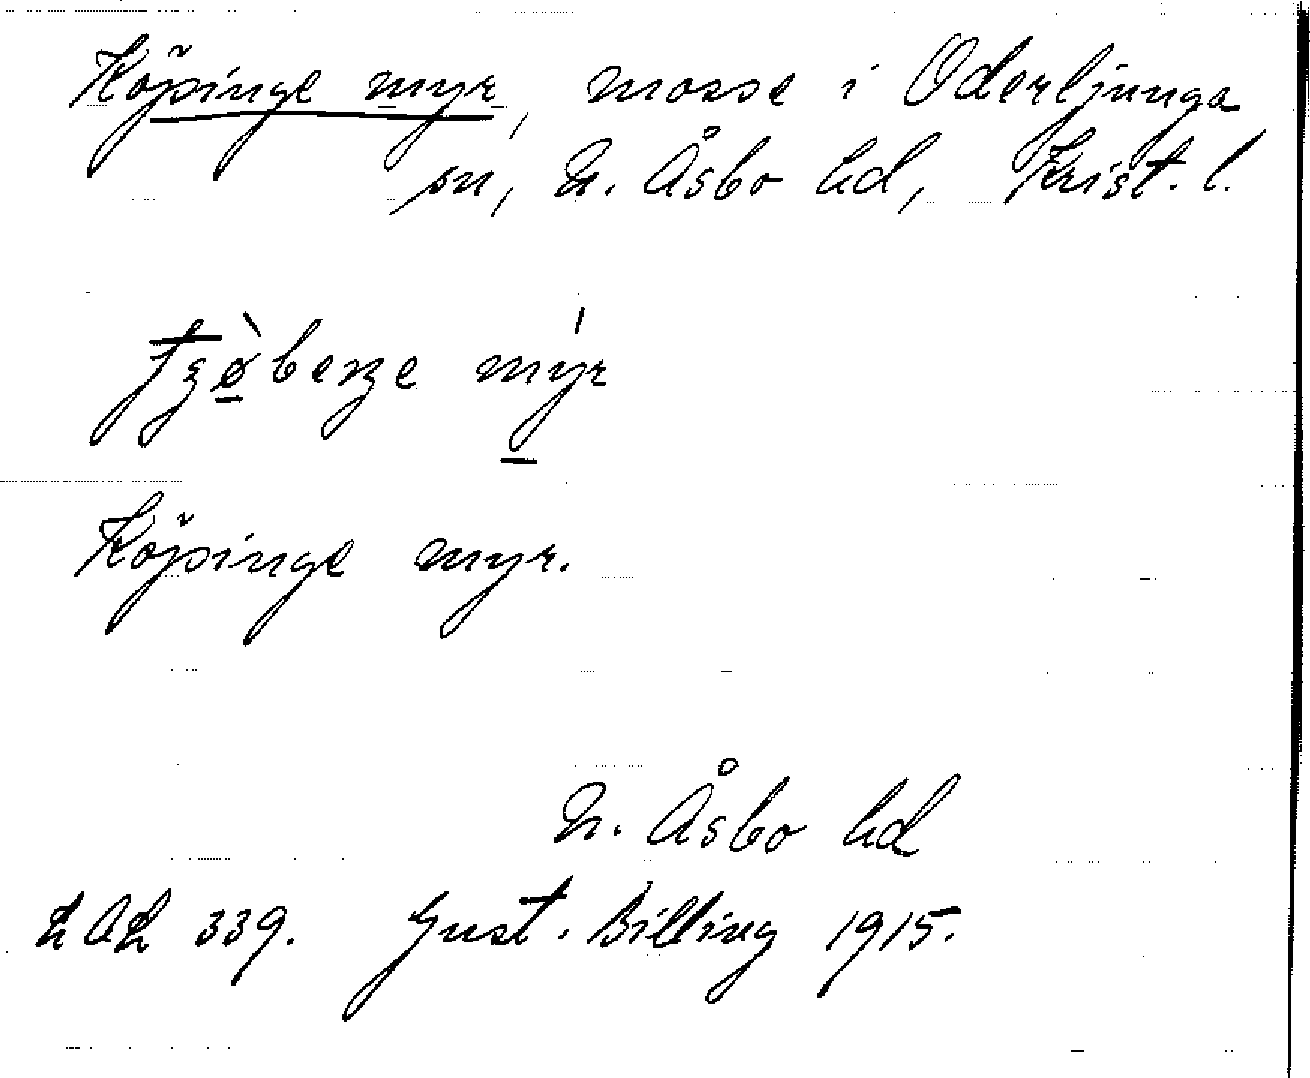 Köpinge myr, mosse i Oderljunga
sn, N. Åsbo hd, Krist. l.
myr
Köpinge myr.
N. Åsbo hd
339. Gust. Billing 1915.